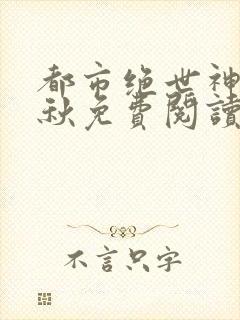 都市绝世神
秋免費閱讀
不言只字